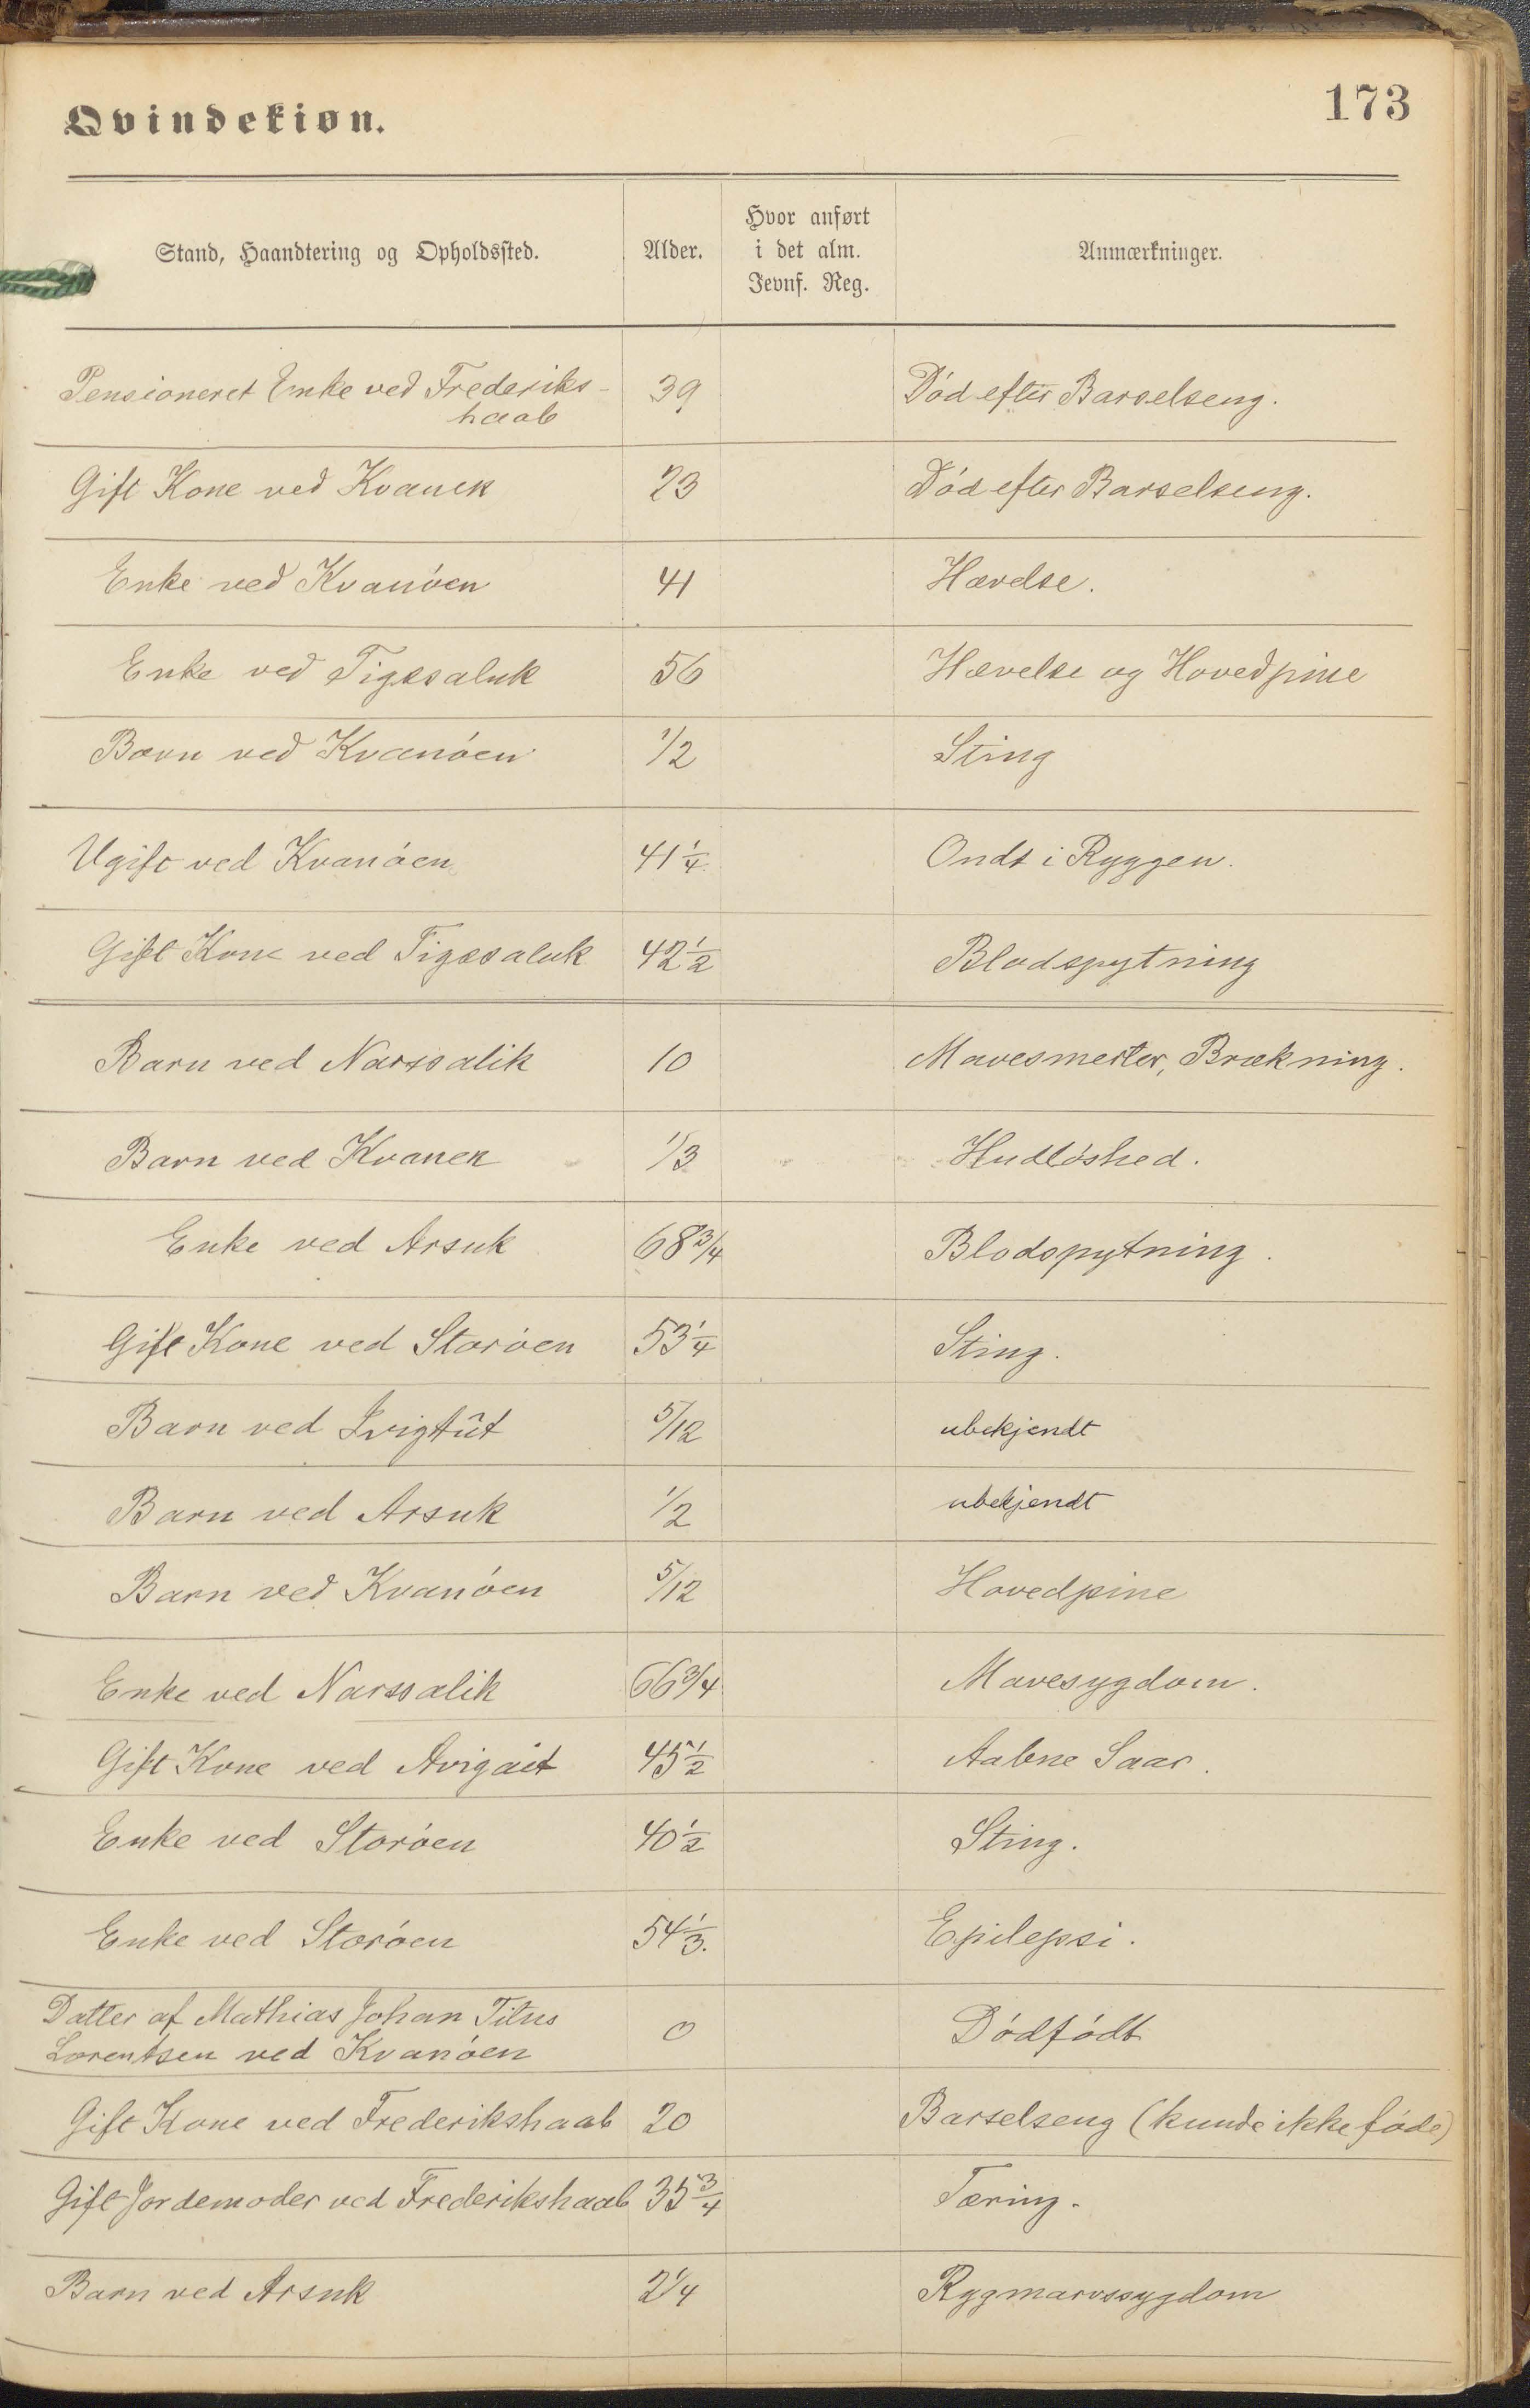 Qvindekiøn.
173
Stand, Haandtering og Opholdssted.
Alder.
Hvor anført
i det alm.
Jevnf. Reg.
Anmærkninger.
Pensioneret Enke ved Frederiks- 39 Død efter Barselseng.
haab
Gift Kone ved Kvanek 23 Død efter Barselseng.
Enke ved Kvanøen 41 Hævelse.
Enke ved Tigssaluk 56 Hævelse og Hovedpine
Barn ved Kvanøen 1/2 Sting
Ugift ved Kvanøen 41 1/4 Ondt i Ryggen.
Gift Kone ved Tigssaluk 42 1/2 Blodspytning
Barn ved Narssalik 10 Mavesmerter, Brækning.
Barn ved Kvanek 1/3 Hudløshed.
Enke ved Arsuk 68 3/4 Blodspytning.
Gift Kone ved Storøen 53 1/4 Sting.
Barn ved Ivigtût 5/12 ubekjendt
Barn ved Arsuk 1/2 ubekjendt
Barn ved Kvanøen 5/12 Hovedpine
Enke ved Narssalik 66 3/4 Mavesygdom.
Gift Kone ved Avigait 45 1/2 Aabne Saar.
Enke ved Storøen 40 1/2 Sting.
Enke ved Storøen 54 1/3. Epilepsi.
Datter af Mathias Johan Titus
Lorentsen ved Kvanøen 0 Dødfødt
Gift Kone ved Frederikshaab 20 Barselseng (kunde ikke føde)
Gift Jordemoder ved Frederikshaab 35 3/4 Tæring.
Barn ved Arsuk 2 1/4 Rygmarvssygdom